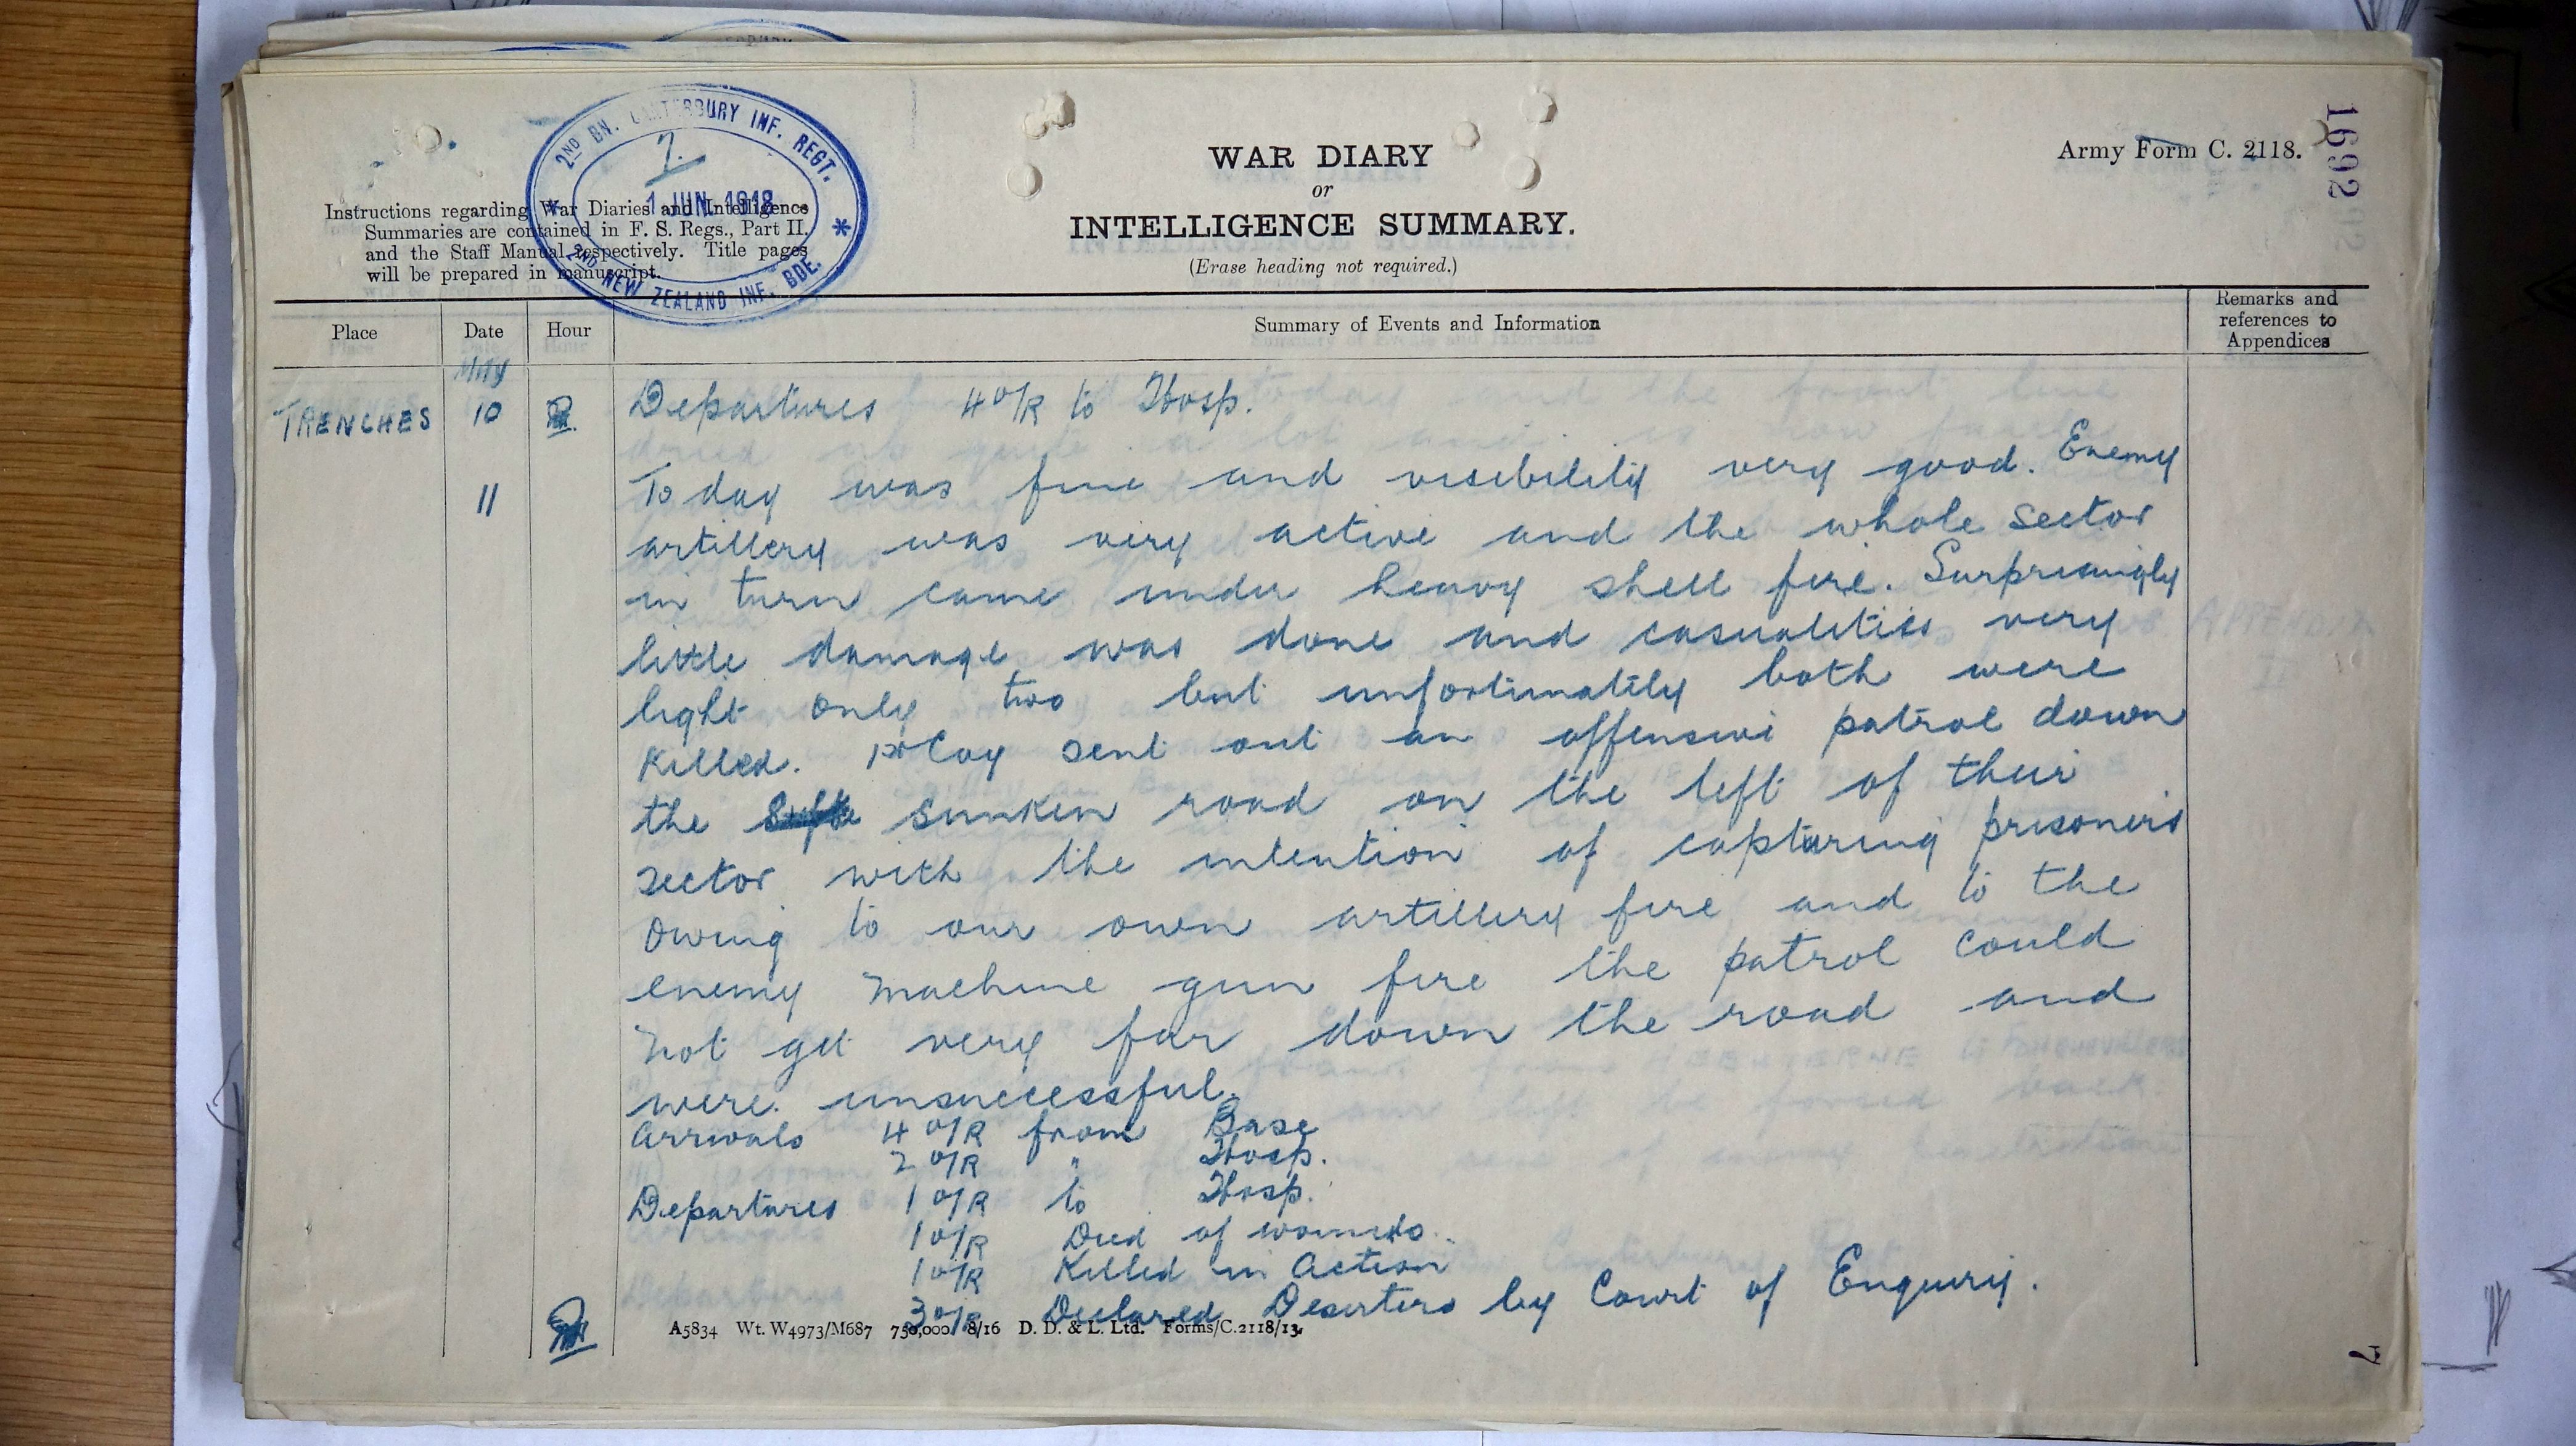 2ND BN. CANTERBURY INF. REGT.
7.
1 JUN. 1918
2ND NEW ZEALAND INF. BDE.
WAR DIARY
or
INTELLIGENCE SUMMARY.
(Erase heading not required.)
Army Form C. 2118.
1692
Instructions regarding War Diaries and Intelligence
Summaries are contained in F. S. Regs., Part II.
and the Staff Manual respectively. Title pages
will be prepared in manuscript.
Place Date Hour Summary of Events and Information Remarks and references to Appendices
MAY
TRENCHES 10 Departures 4 O/R to Hosp.
11 Today was fine and visibility very good. Enemy
artillery was very active and the whole sector
in turn came under heavy shell fire. Surprisingly
little damage was done and casualities very
light only two but unfortunately both were
killed. Coy sent out an offensive patrol down
the sunken road on the left of their
sector with the intention of capturing prisoners
Owing to our own artillery fire and to the
enemy machine gun fire the patrol could
not get very far down the road and
were unsuccessful.
Arrivals 4 O/R from Base
2 O/R " Hosp.
Departures 1 O/R to Hosp.
1 O/R Died of wounds.
1 O/R Killed in Action
3 O/R Declared Deserters by Court of Enquiry.
A5834 Wt. W4973/M687 750,000 8/16 D. D. & L. Ltd. Forms/C.2118/13.
7